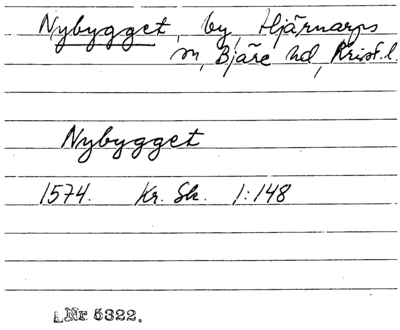 Nybygget, by, Hjärnarps
sn, Bjäre hd, Krist.l.
Nybygget
1574. Kr. Sk. 1:148
LNr 5322.